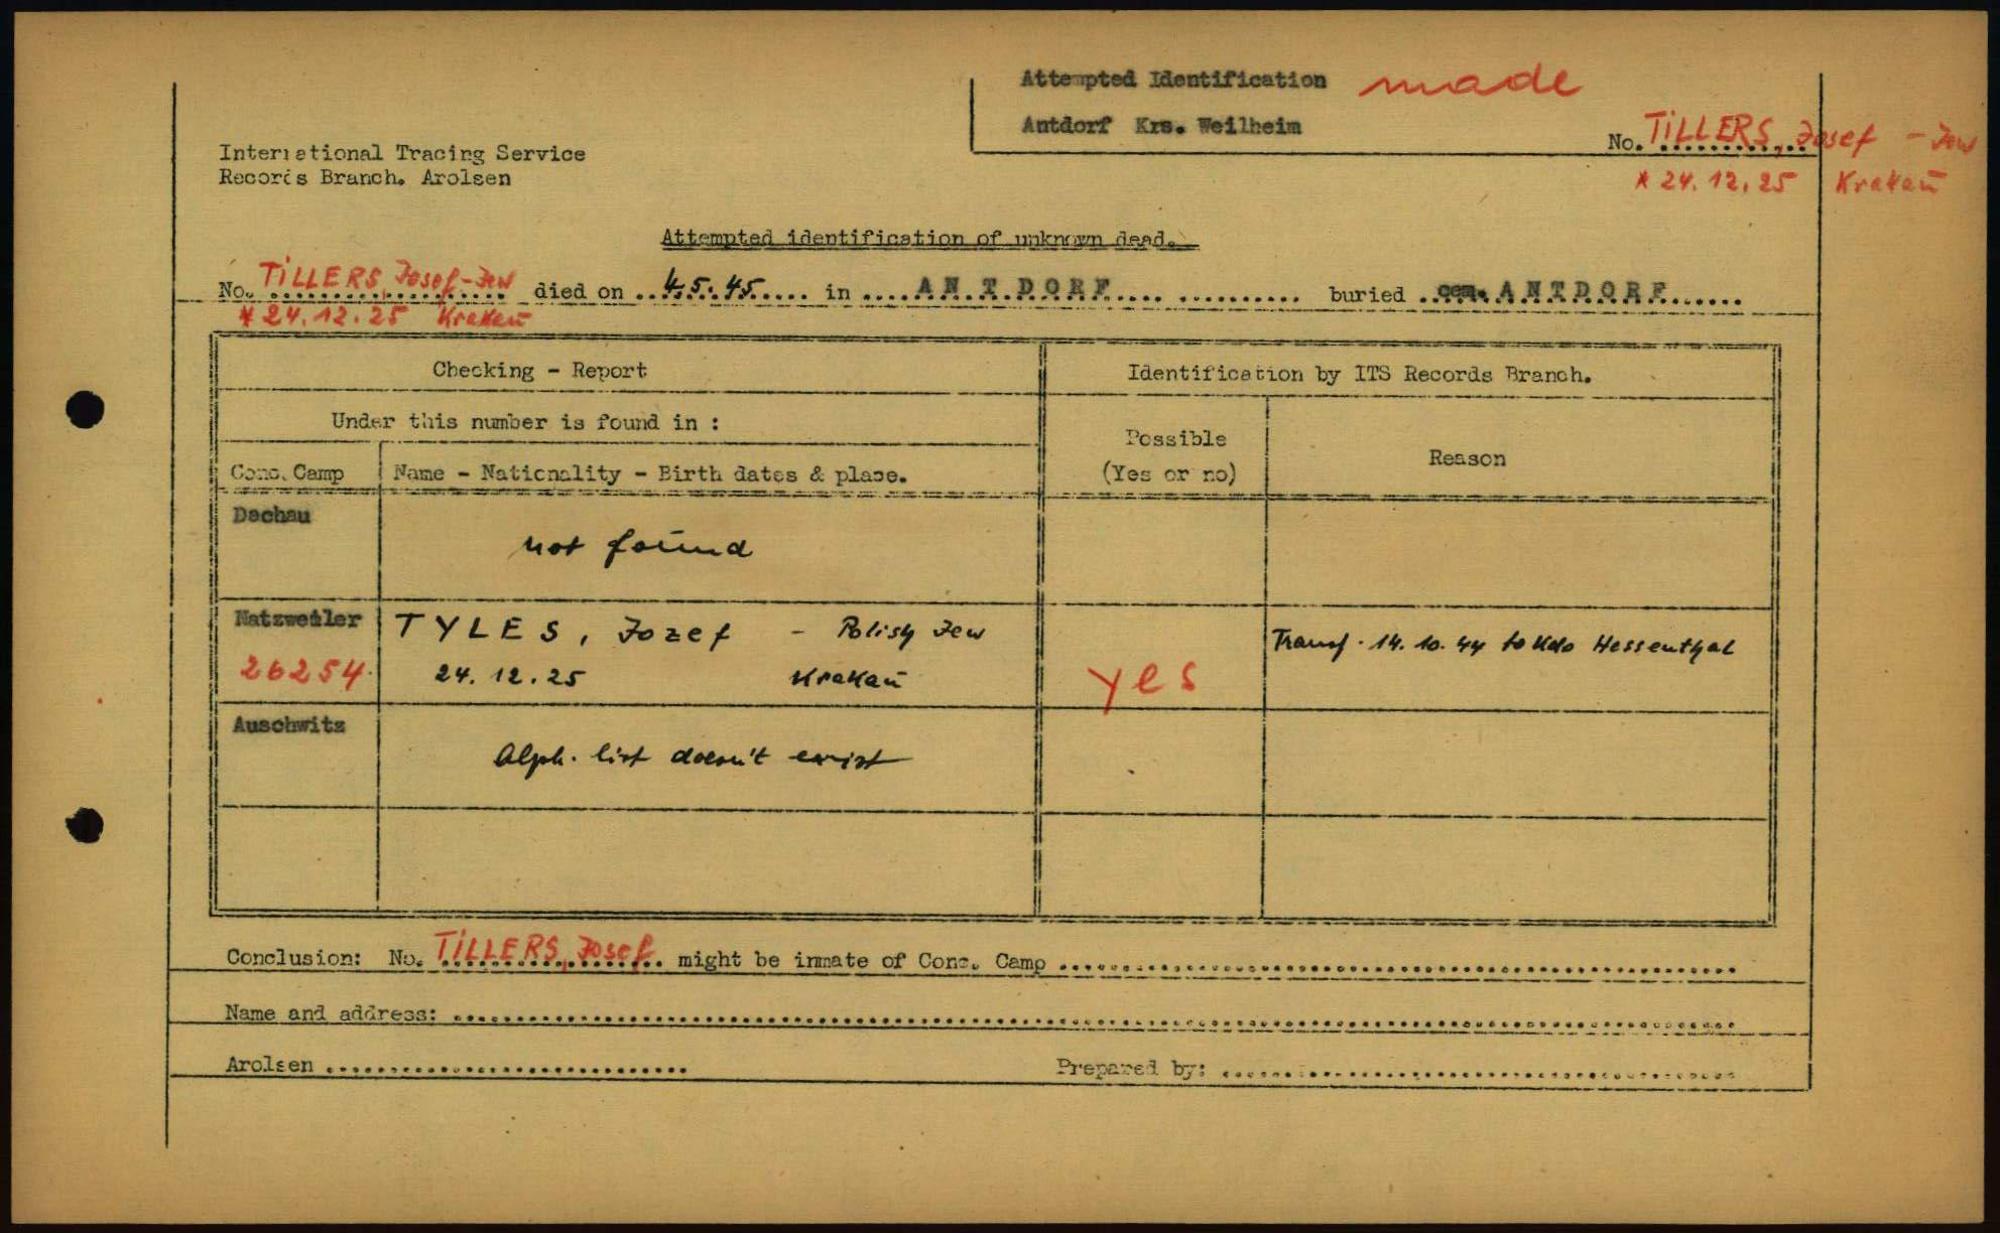 Attempted Identification made
Antdorf Krs. Weilheim
No. TILLERS, Josef - Jew
* 24.12.25 Krakau
International Tracing Service
Records Branch. Arolsen
Attempted identification of unknown dead.
No. TILLERS, Josef - Jew died on 4.5.45 in ANTDORF buried cem. ANTDORF
* 24.12.25 Krakau
Checking - Report
Identification by ITS Records Branch.
Under this number is found in :
Possible
(Yes or no)
Reason
Conc. Camp
Name - Nationality - Birth dates & place.
Dachau
not found
Natzweiler
26254
TYLES, Jozef - Polish Jew
24.12.25 Krakau
yes
Transf. 14.10.44 to Kdo Hessenthal
Auschwitz
Alph. list doesn't exist
Conclusion: No. TILLERS, Josef might be inmate of Conc. Camp
Name and address:
Arolsen
Prepared by: